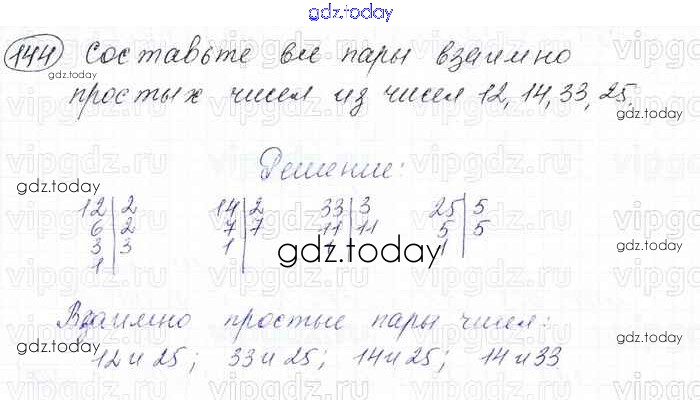 gdz.today
144 Составьте все пары взаимно
gdz.today
простых чисел из чисел 12, 14, 33, 25.
gdz.today
Решение:
gdz.today
12|2 14|2 33|3 25|5
6|2 7|7 11|11 5|5
3|3 1 1 1
1
gdz.today
Взаимно простые пары чисел:
12 и 25; 33 и 25; 14 и 25; 14 и 33
gdz.today
gdz.today